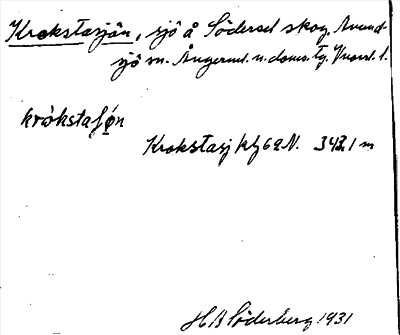 Krokstasjön, sjö å Södersel skog, Avund-
sjö sn. Ångerml. n. doms. tg. Vnorrl. l.
kròkstaʃø̀n
Krokstasj kfg 62 N. 343.1 m
H B Söderberg 1931